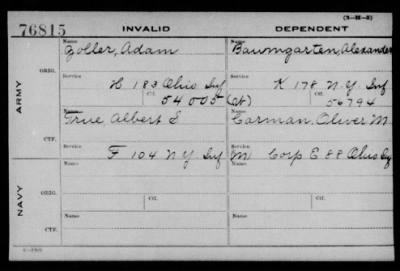 (3-III-3)
76815 INVALID DEPENDENT
Name Name
Zoller, Adam Baumgarten, Alexander
ARMY
ORIG.
Service Service
H 183 Ohio Inf K 178 N.Y. Inf
Ctf. 54005 (Ct) Ctf. 56794
Name Name
True Albert S Carman, Oliver M.
CTF.
Service Service
F 104 N.Y. Inf Corp E 88 Ohio Inf
Name Name
NAVY
ORIG.
Service Ctf. Service Ctf.
Name Name
CTF.
Service Service